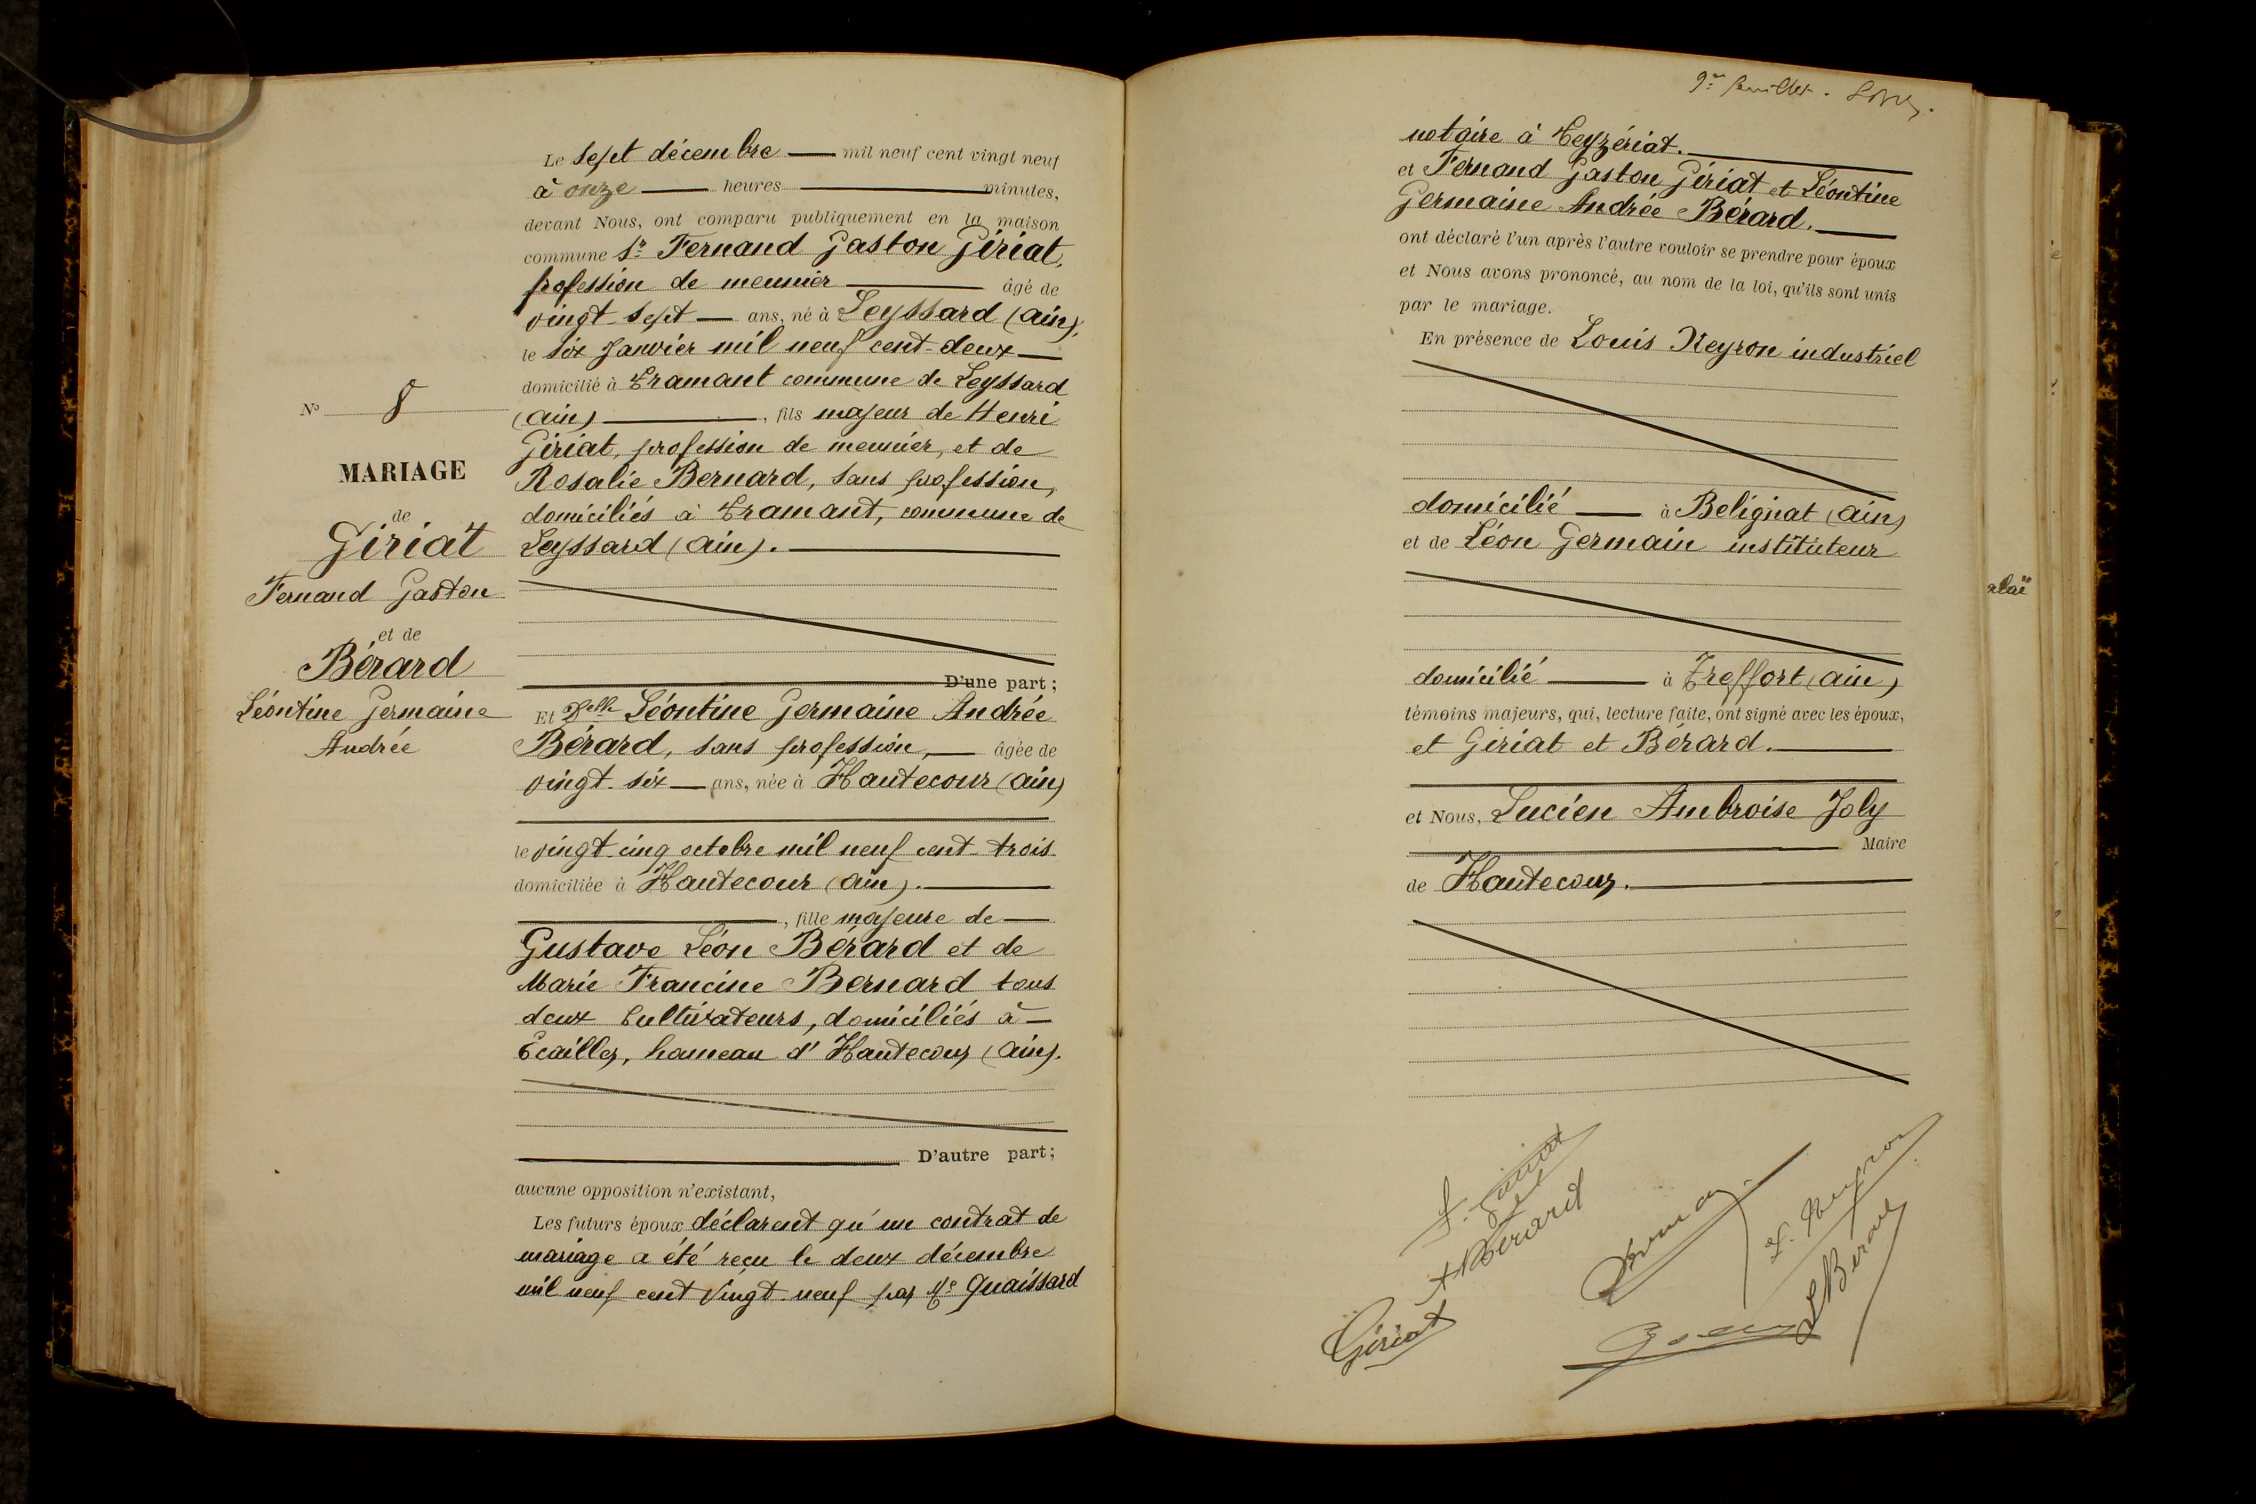 Le sept décembre mil neuf cent vingt neuf
à onze heures minutes,
devant Nous, ont comparu publiquement en la maison
commune Sr Fernand Gaston Giriat,
profession de meunier âgé de
vingt-sept ans, né à Leyssard (Ain),
le six Janvier mil neuf cent-deux
domicilié à Tramant commune de Leyssard
(Ain), fils majeur de Henri
Giriat, profession de meunier, et de
Rosalie Bernard, sans profession,
domiciliés à Tramant, commune de
Leyssard (Ain).
D'une part;
No 8
MARIAGE
de
Giriat
Fernand Gaston
et de
Bérard
Léontine Germaine
Andrée
Et Delle Léontine Germaine Andrée
Bérard, sans profession, âgée de
vingt-six ans, née à Hautecour (Ain)
le vingt-cinq octobre mil neuf cent-trois
domiciliée à Hautecour (Ain).
, fille majeure de
Gustave Léon Bérard et de
Marie Francine Bernard tous
deux Cultivateurs, domiciliés à
Ecailles, hameau d'Hautecour (Ain).
D'autre part;
aucune opposition n'existant,
Les futurs époux déclarent qu'un contrat de
mariage a été reçu le deux décembre
mil neuf cent vingt-neuf par Me Quaissard
notaire à Ceyzériat.
et Fernand Gaston Giriat et Léontine
Germaine Andrée Bérard.
ont déclaré l'un après l'autre vouloir se prendre pour époux
et Nous avons prononcé, au nom de la loi, qu'ils sont unis
par le mariage.
En présence de Louis Neyron industriel
domicilié à Belignat (Ain)
et de Léon Germain instituteur
domicilié à Treffort (Ain)
témoins majeurs, qui, lecture faite, ont signé avec les époux,
et Giriat et Bérard.
et Nous, Lucien Ambroise Joly
Maire
de Hautecour.
F. Giriat
A Bérard
L. Neyron
L Bérard
Giriat